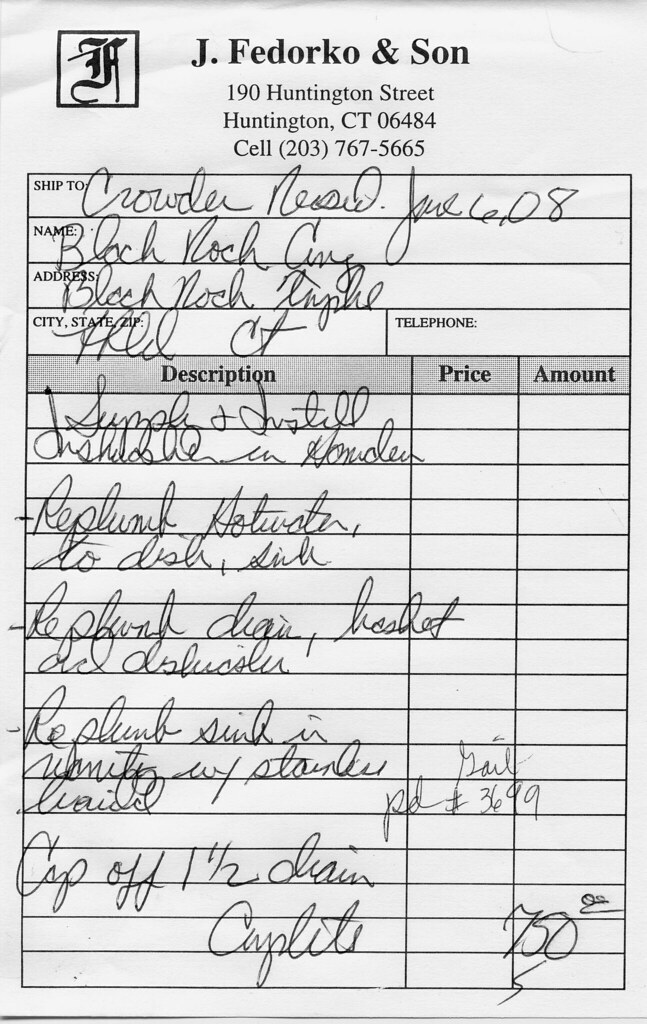 F
J. Fedorko & Son
190 Huntington Street
Huntington, CT 06484
Cell (203) 767-5665
SHIP TO: Crowder June 6, 08
NAME: Black Rock Cong
ADDRESS: Black Rock Tnpke
CITY, STATE, ZIP: CT
TELEPHONE:
Description Price Amount
Supply & Install
in
- Replumb Hotwater,
to dish, sink
- Replumb drain, basket
and dishwasher
- Replumb sink in
w/ stainless
braid
Gail
pd # 3699
Cap off 1 1/2 drain
Complete 750 00